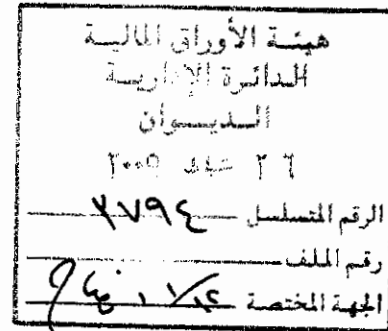 هيئة الأوراق المالية
الدائرة الإدارية
الديوان
٢٦ شباط ٢٠٠٩
الرقم المتسلسل ٣٧٩٤
رقم الملف
الجهة المختصة